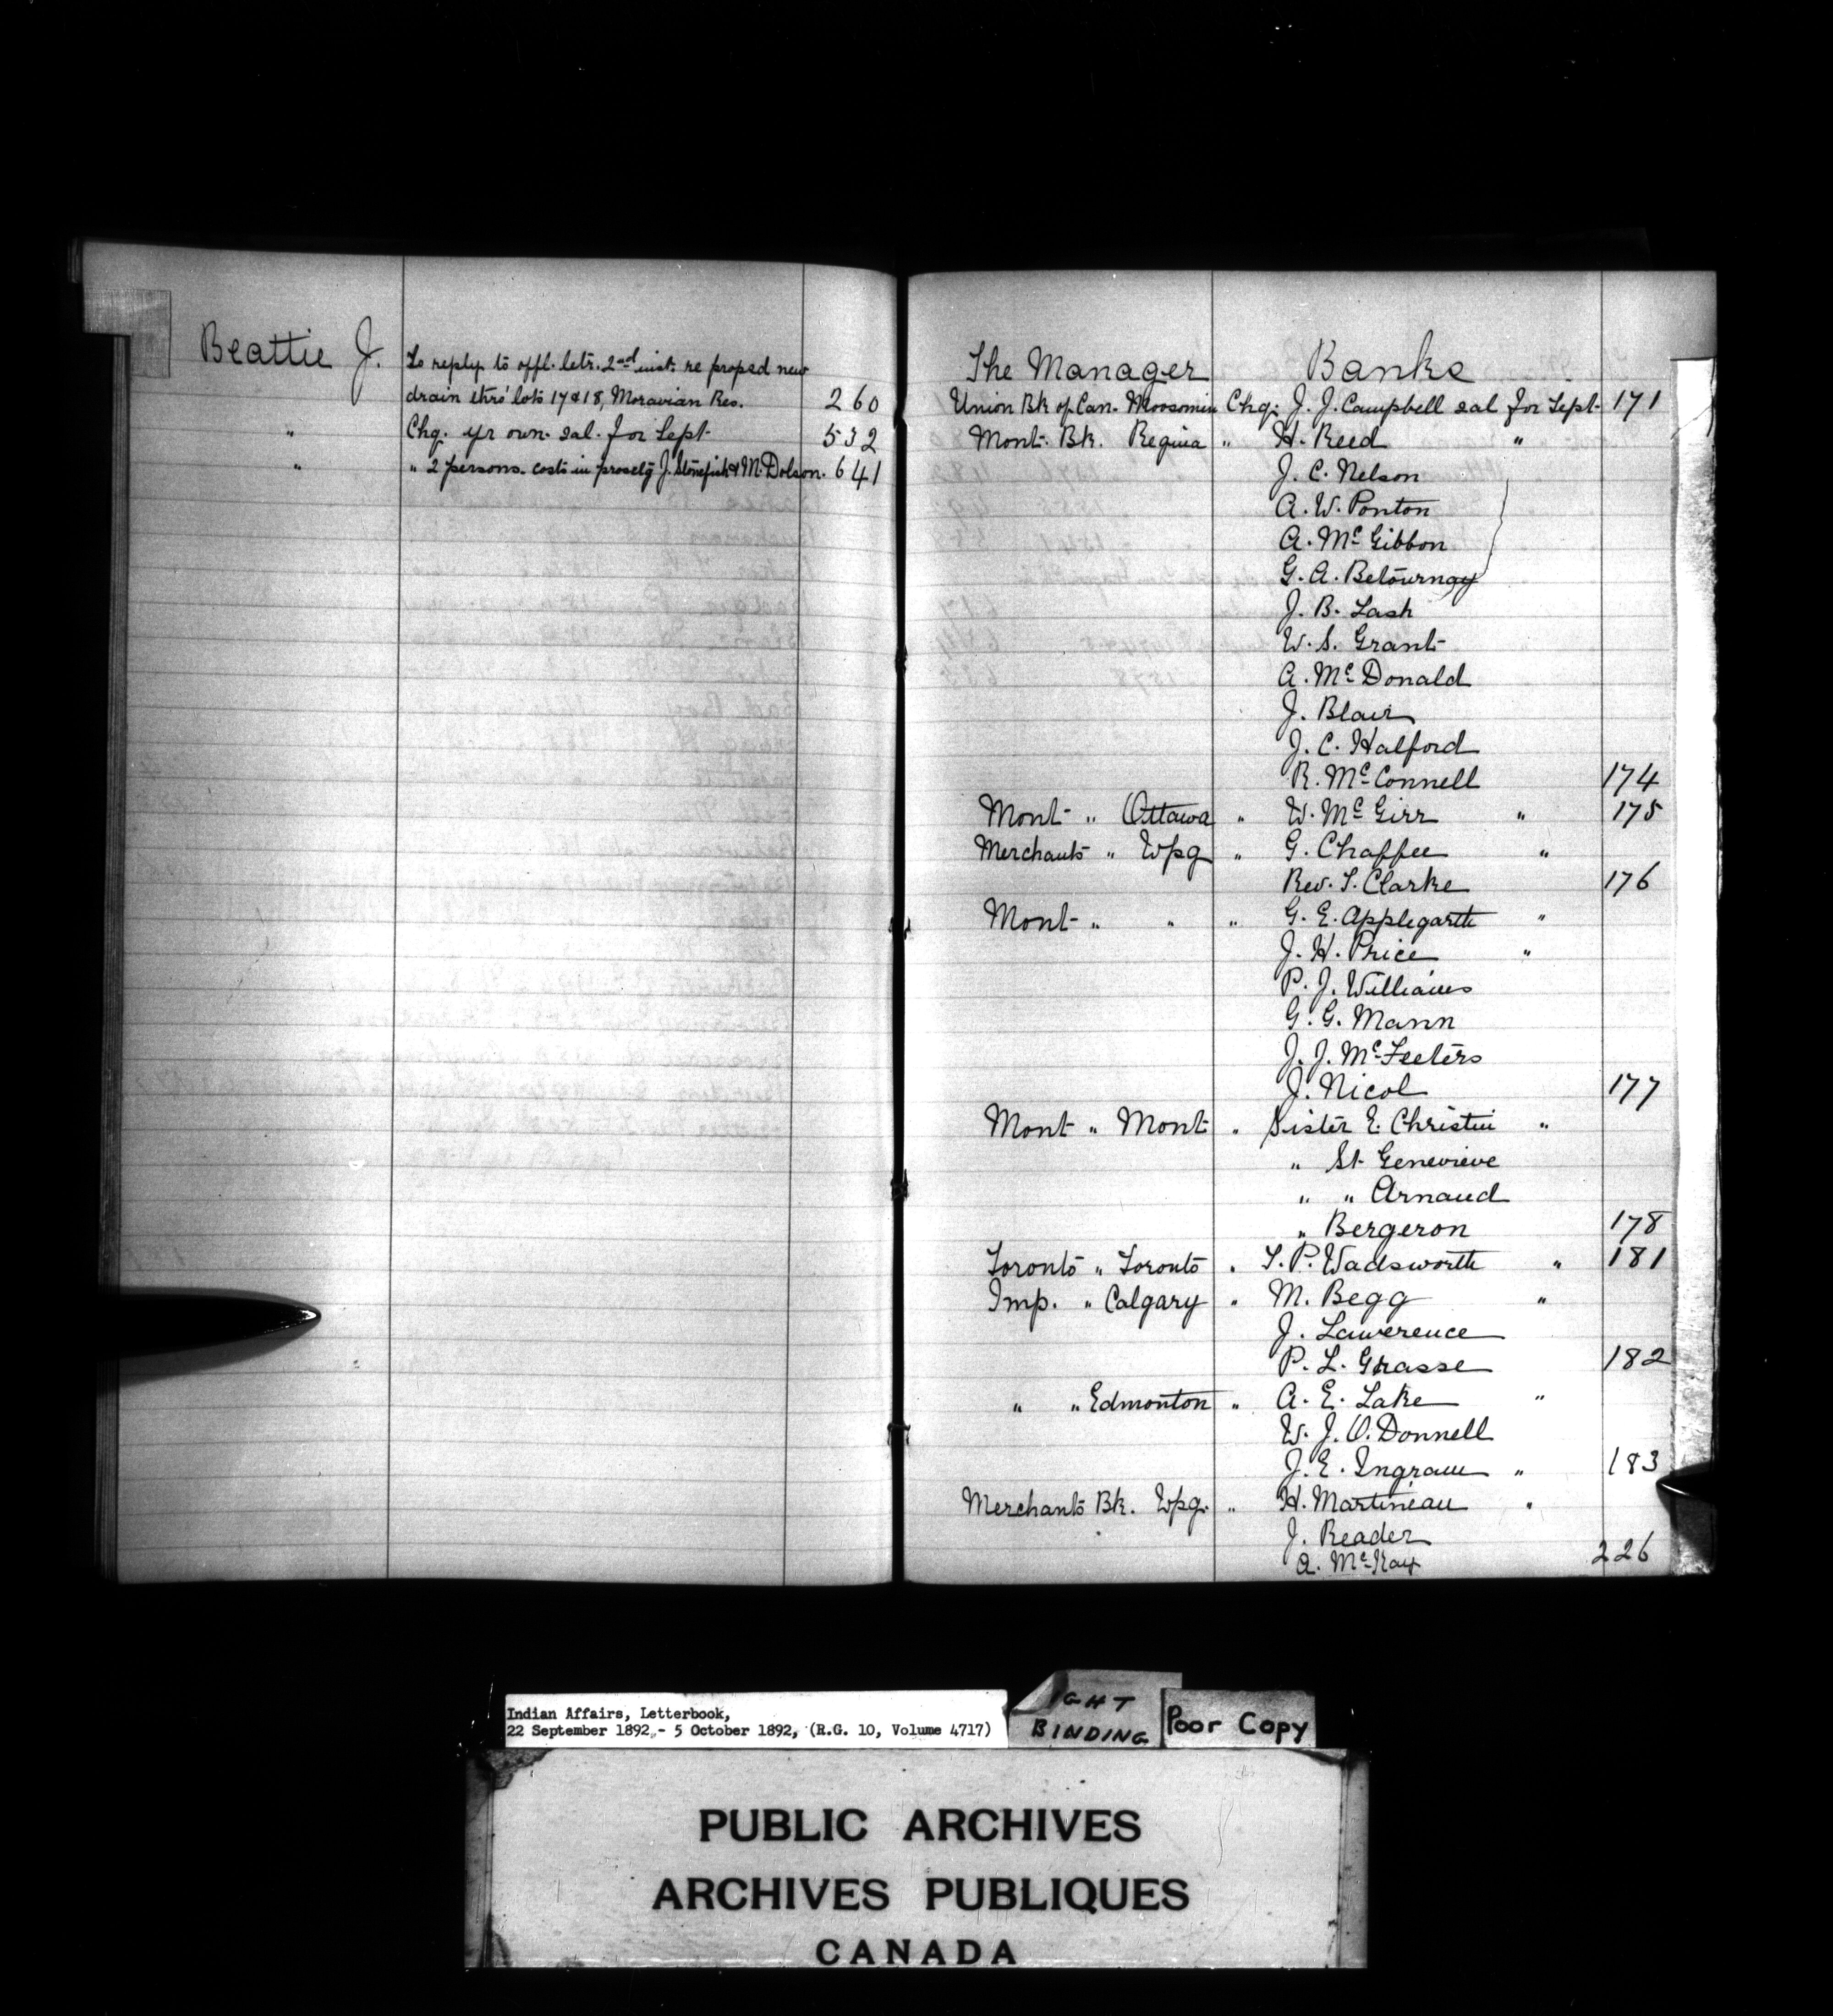 Beattie J. To reply to offl. letr. 2nd inst. re propsd new
drain thro' lots 17 & 18, Moravian Res. 260
" Chq. yr own sal. for Sept 532
" " 2 persons costs in prosctg J. Stonefish & M. Dolson. 641
The Manager Banks
Union Bk of Can. Moosomin Chq. J. J. Campbell sal for Sept 171
Mont. Bk. Regina " H. Reed "
J. C. Nelson
A. W. Ponton
A. McGibbon
G. A. Betournay
J. B. Lash
W. S. Grant
A. McDonald
J. Blair
J. C. Halford
R. McConnell 174
Mont " Ottawa " W. McGirr " 175
Merchants " Wpg " G. Chaffee "
Rev. T. Clarke 176
Mont " " " G. E. Applegarth "
J. H. Price "
P. J. Williams
G. G. Mann
J. J. McFeeters
J. Nicol 177
Mont " Mont " Sister E. Christin "
" St Genevieve
" " Arnaud
" Bergeron 178
Toronto " Toronto " T. P. Wadsworth " 181
Imp. " Calgary " M. Begg "
J. Lawerence
P. L. Grasse 182
" " Edmonton " A. E. Lake "
W. J. O. Donnell
J. E. Ingram " 183
Merchants Bk. Wpg. " H. Martineau "
J. Reader
A. McKay 226
Indian Affairs, Letterbook,
22 September 1892 - 5 October 1892, (R.G. 10, Volume 4717)
IGHT
BINDING
Poor Copy
PUBLIC ARCHIVES
ARCHIVES PUBLIQUES
CANADA